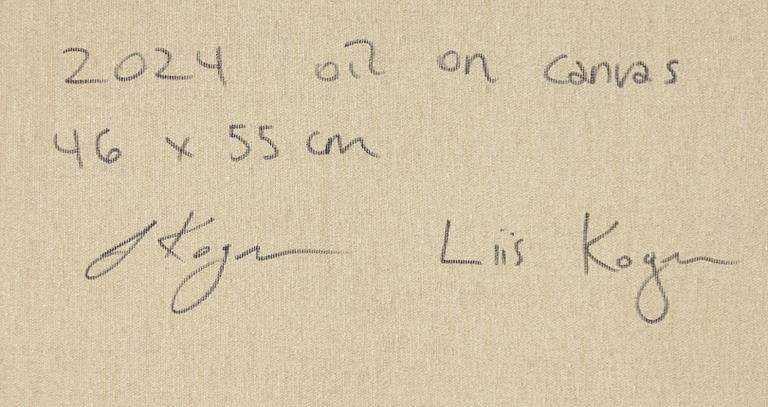 2024 oil on canvas
46 x 55 cm
LKoger Liis Koger